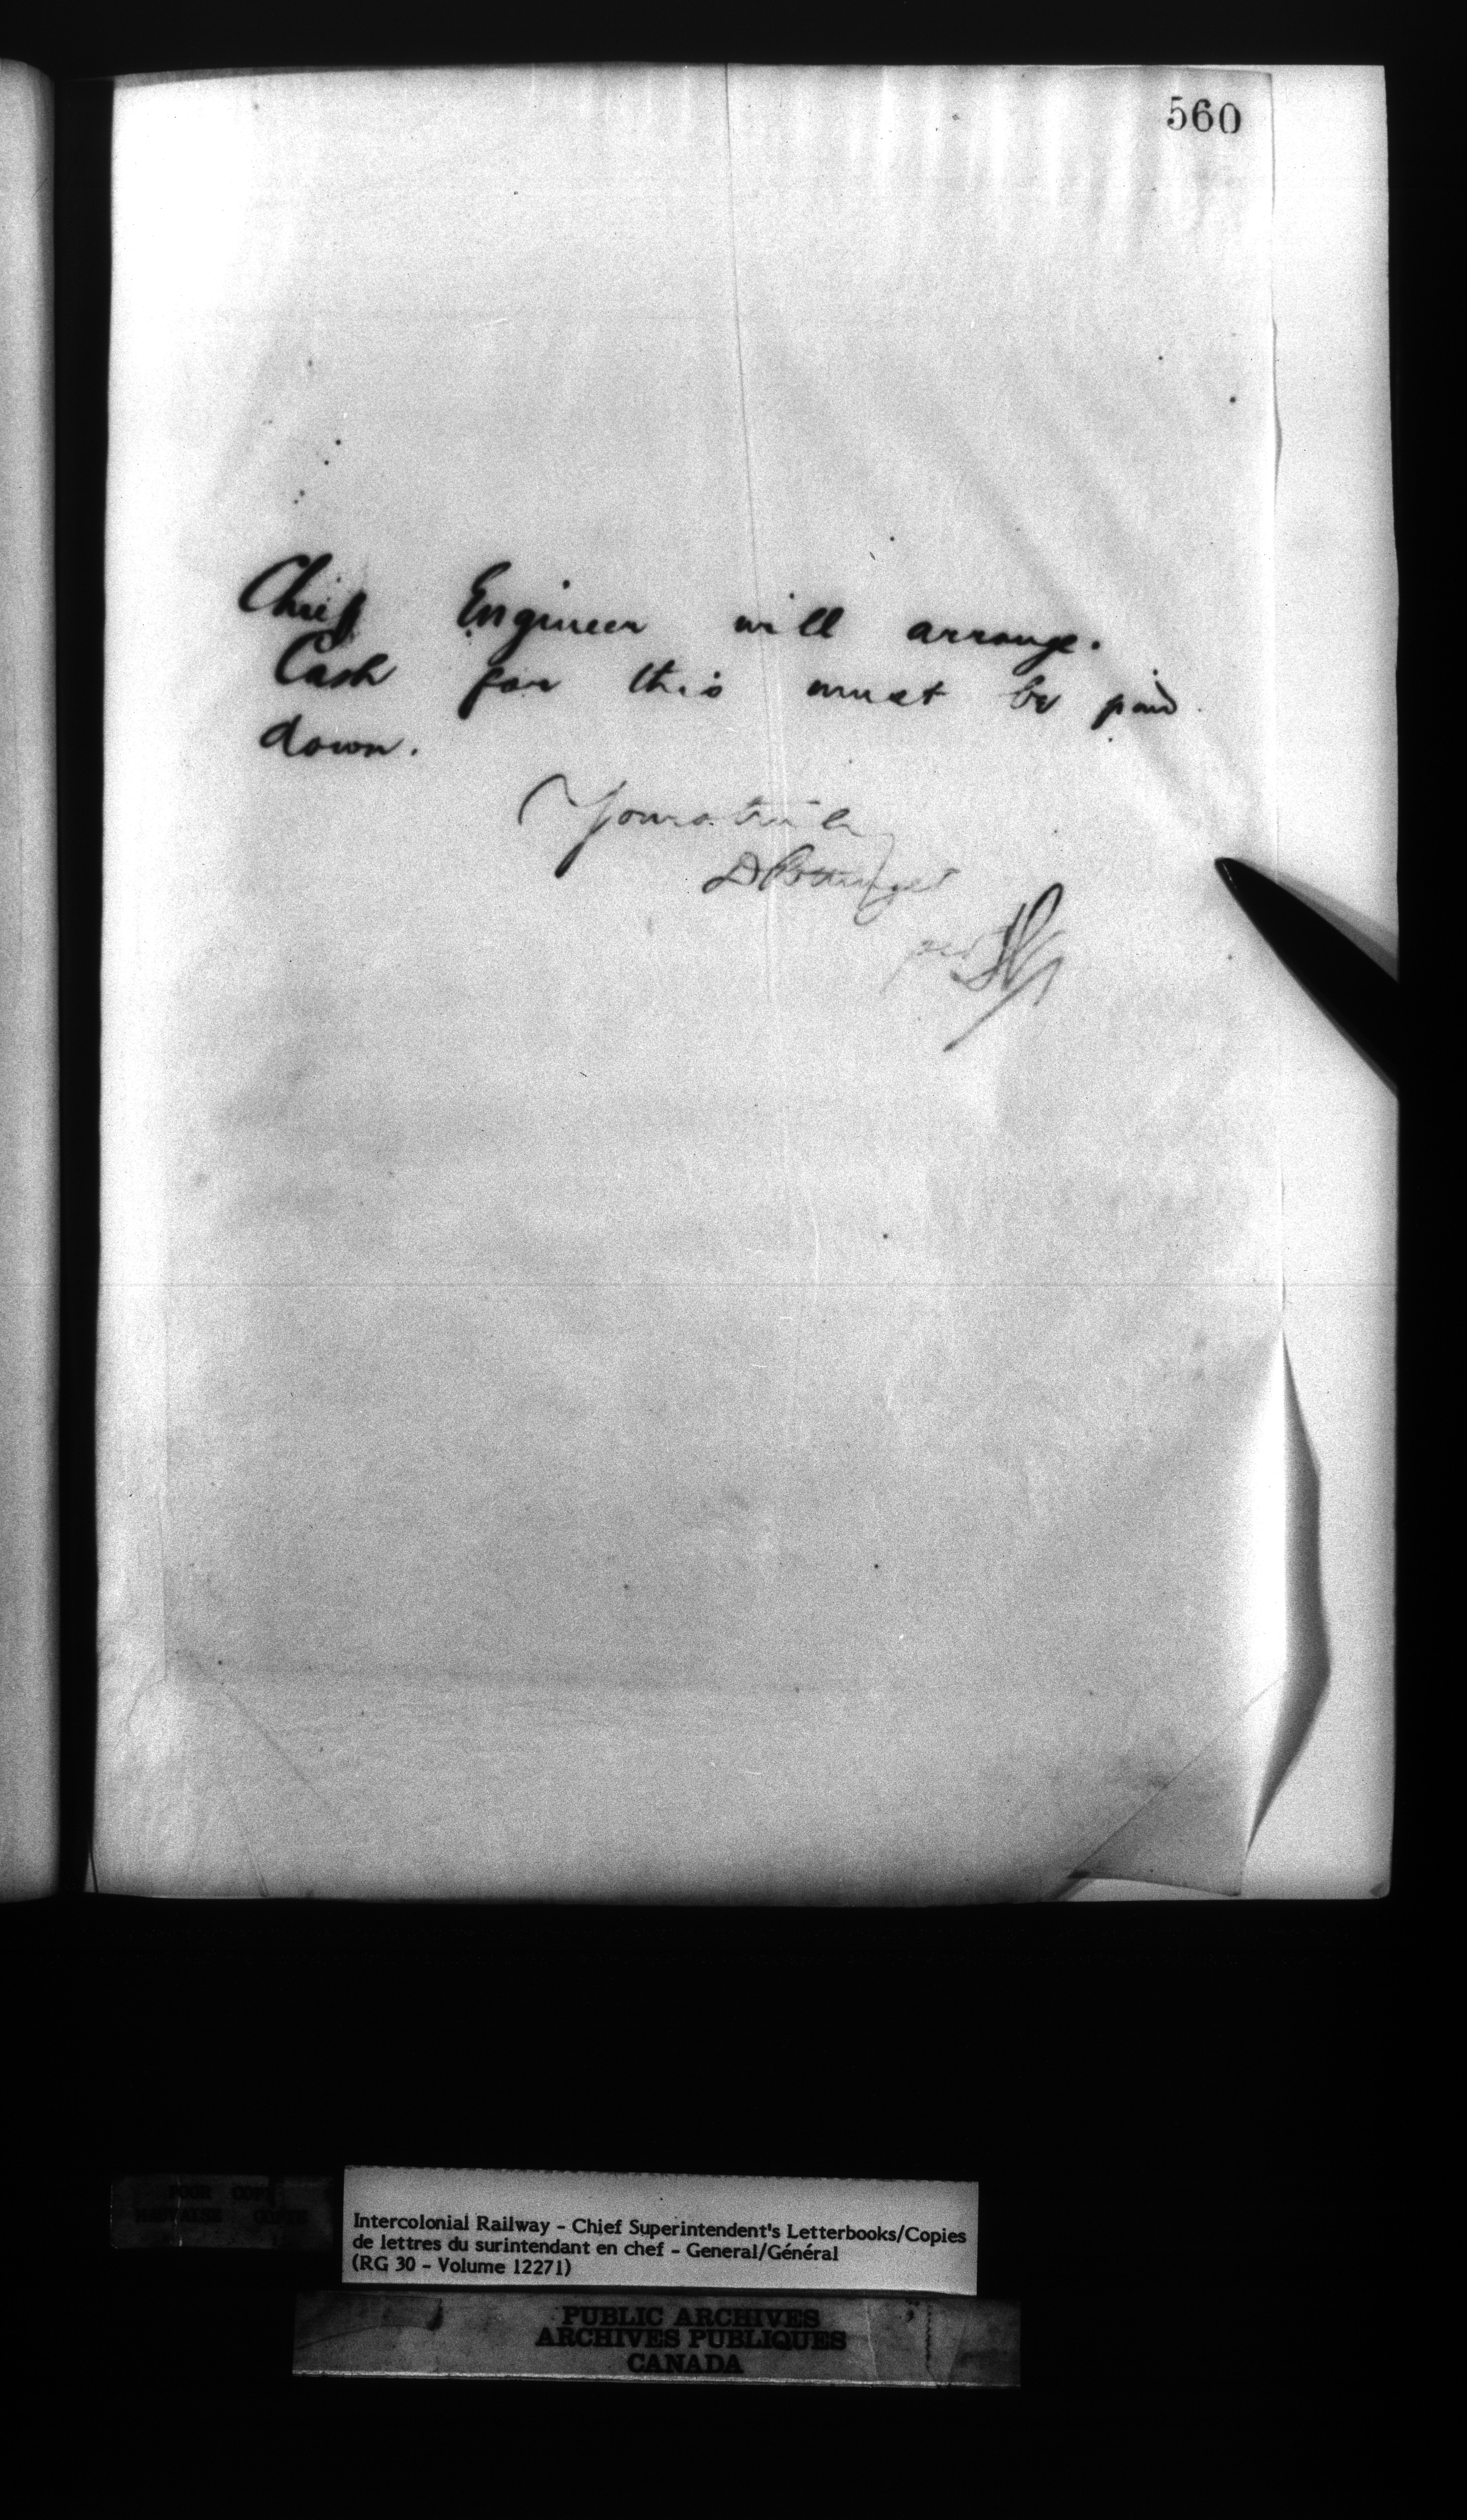 560
Chief Engineer will arrange.
Cash for this must be paid
down.
Yours truly
D Pottinger
per
POOR COPY
MAUVAISE COPIE
Intercolonial Railway - Chief Superintendent's Letterbooks/Copies
de lettres du surintendant en chef - General/Général
(RG 30 - Volume 12271)
PUBLIC ARCHIVES
ARCHIVES PUBLIQUES
CANADA